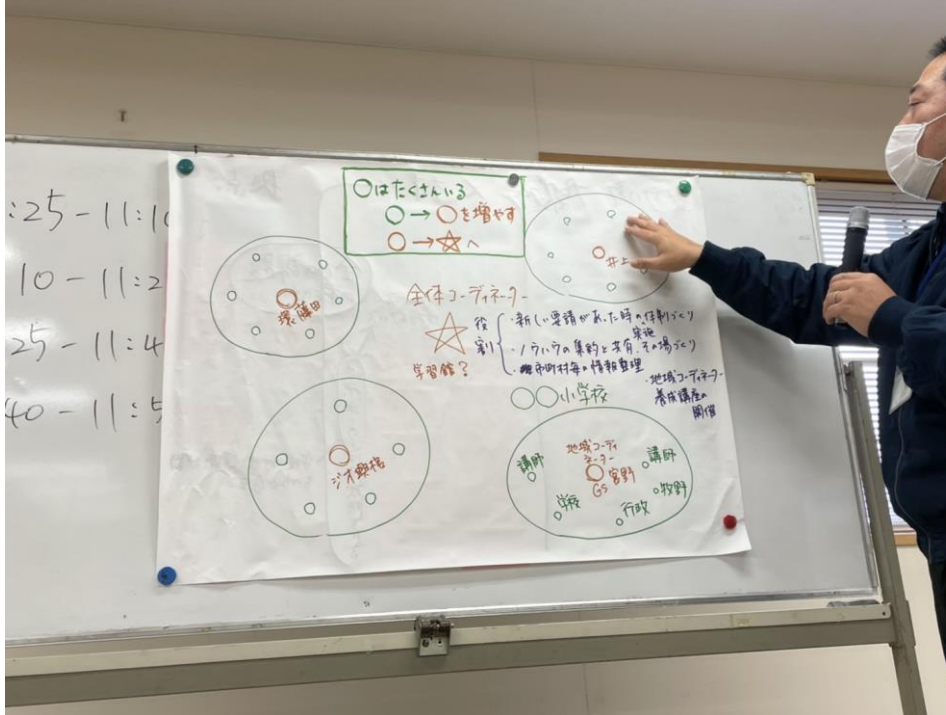 :25-11:10
10-11:2
25-11:4
40-11:5
○はたくさんいる
○→○を増やす
○→☆へ
井上
全体コーディネーター
学習館?
役割
・新しい要請があった時の体制づくり
実施
・ノウハウの集約と共有、その場づくり
・市町村毎の情報整理
・地域コーディネーター
養成講座の
開催
ジオ
○○小学校
地域コーディ
ネーター
GS 宮野
講師
講師
学校
行政
牧野